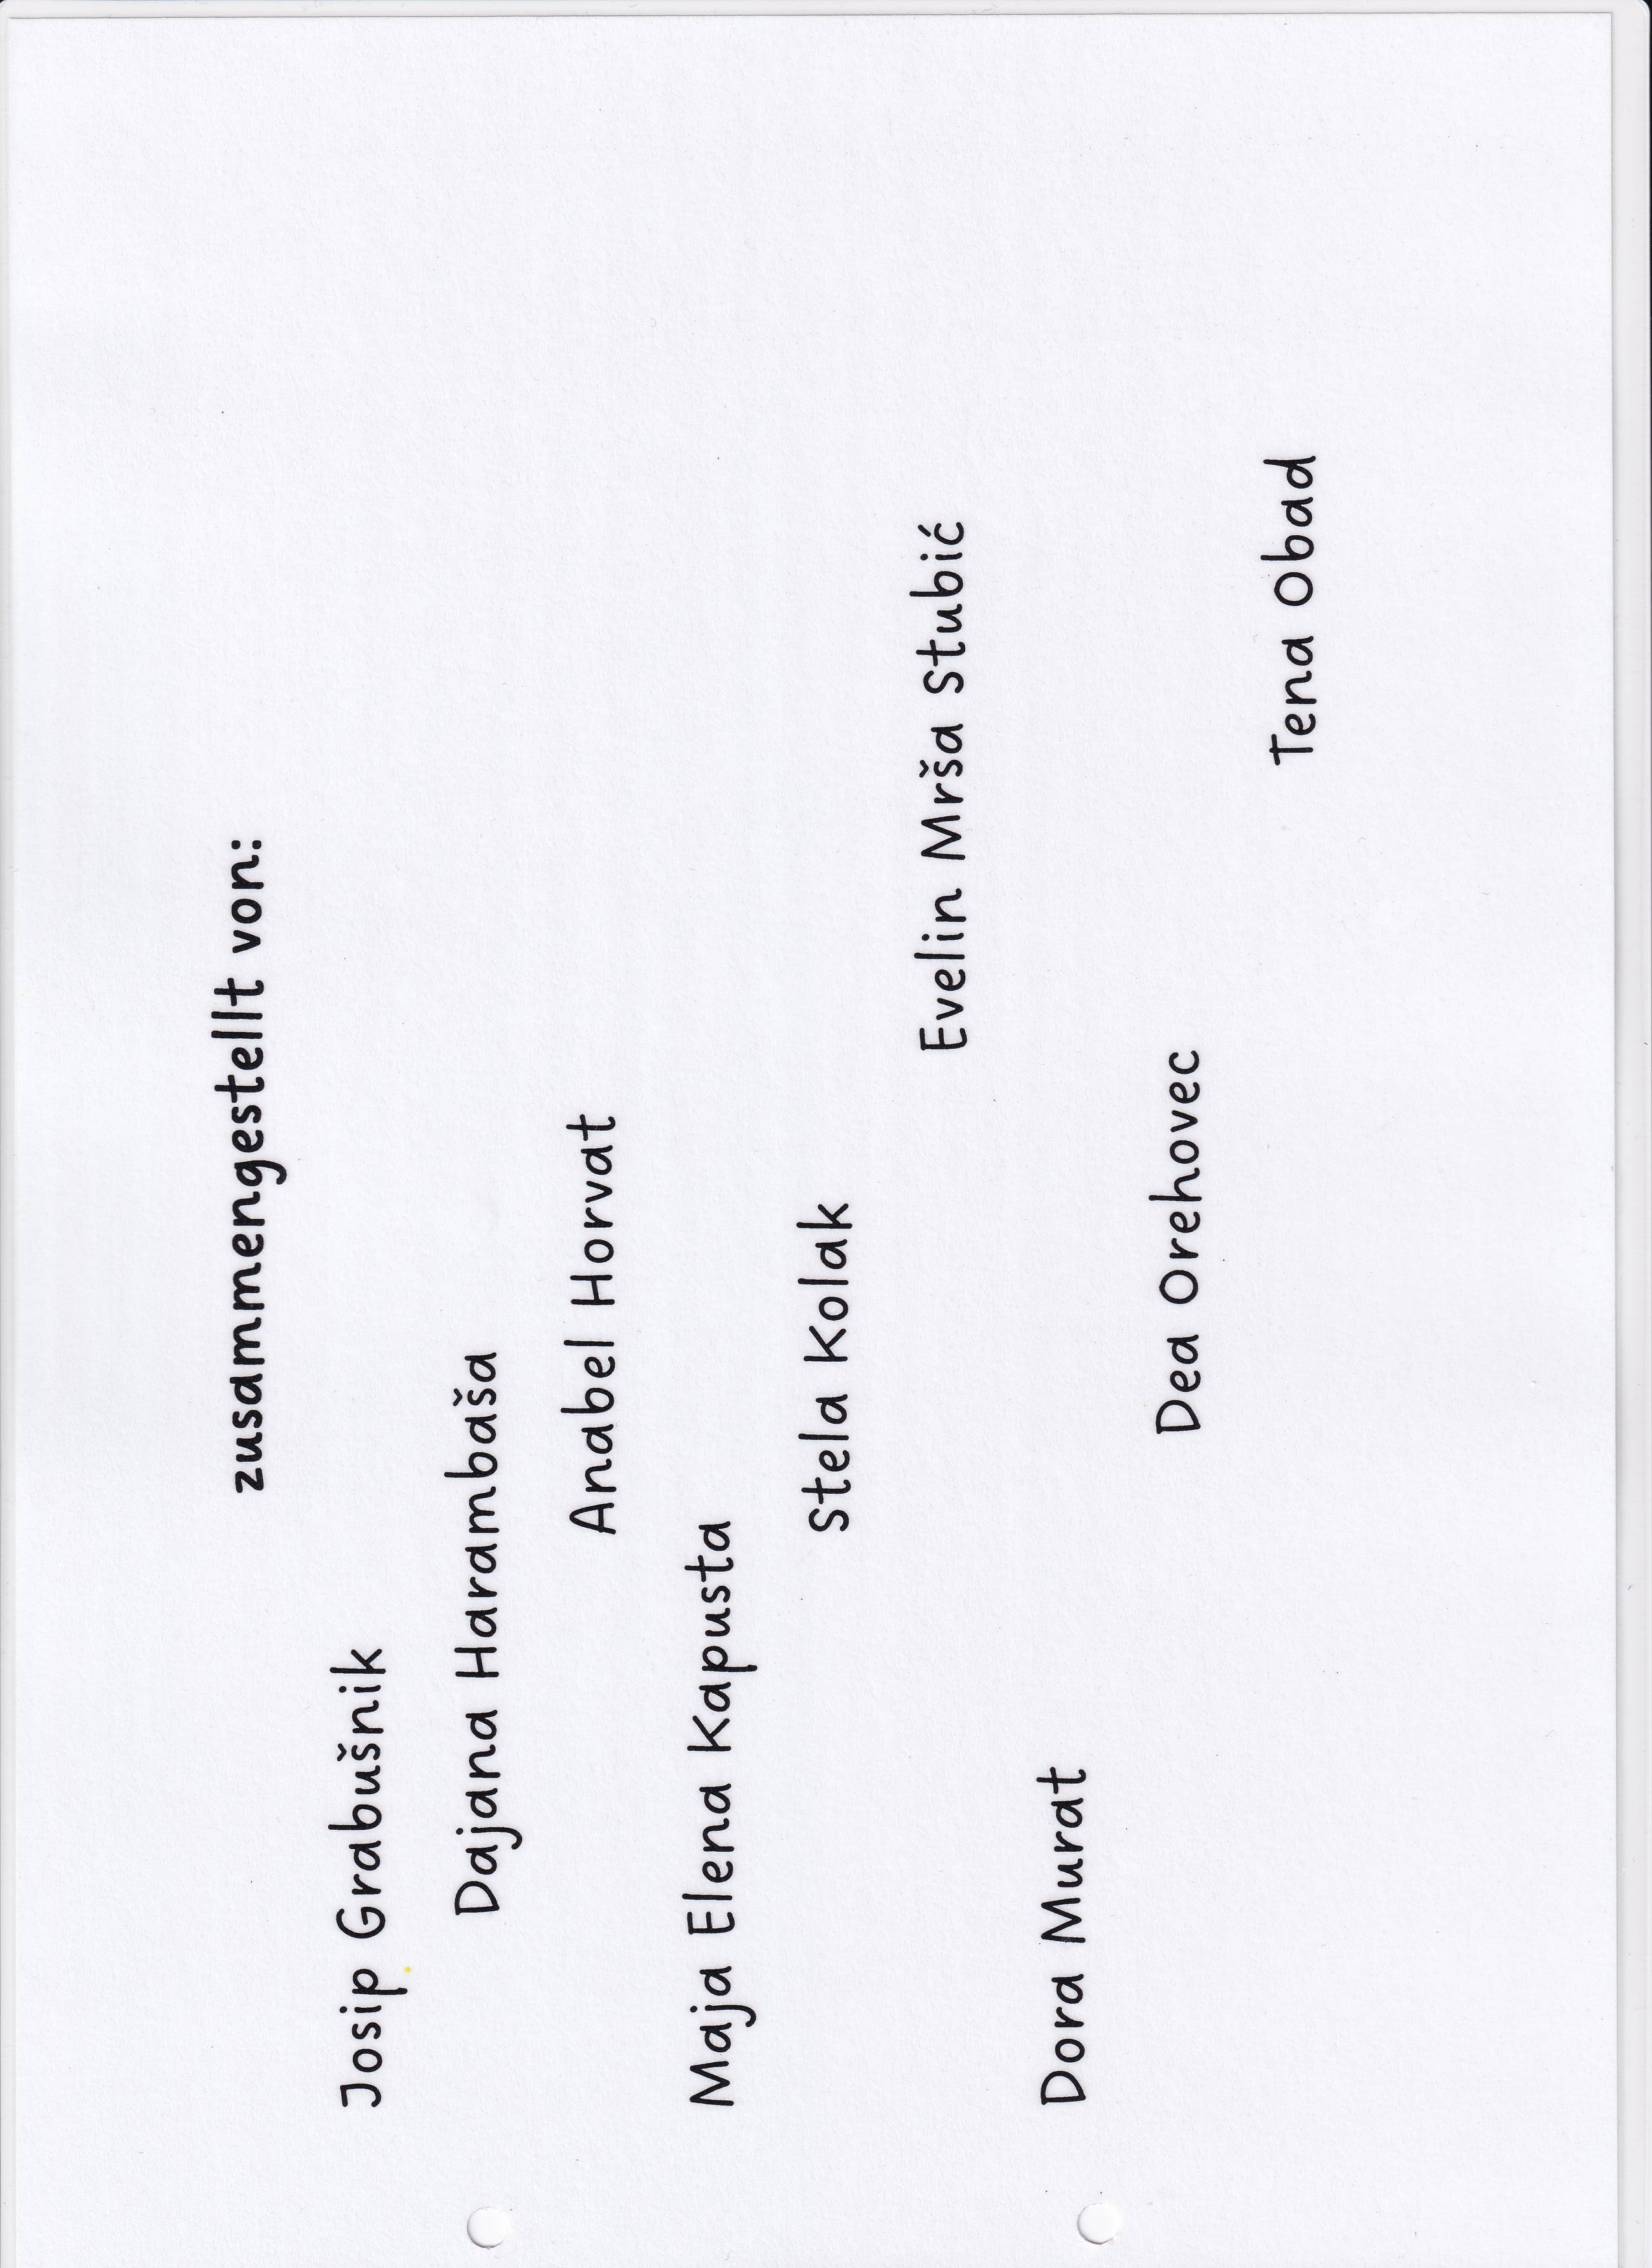 zusammengestellt von:
Josip Grabušnik
Dajana Harambaša
Anabel Horvat
Maja Elena Kapusta
Stela Kolak
Evelin Mrša Stubić
Dora Murat
Dea Orehovec
Tena Obad